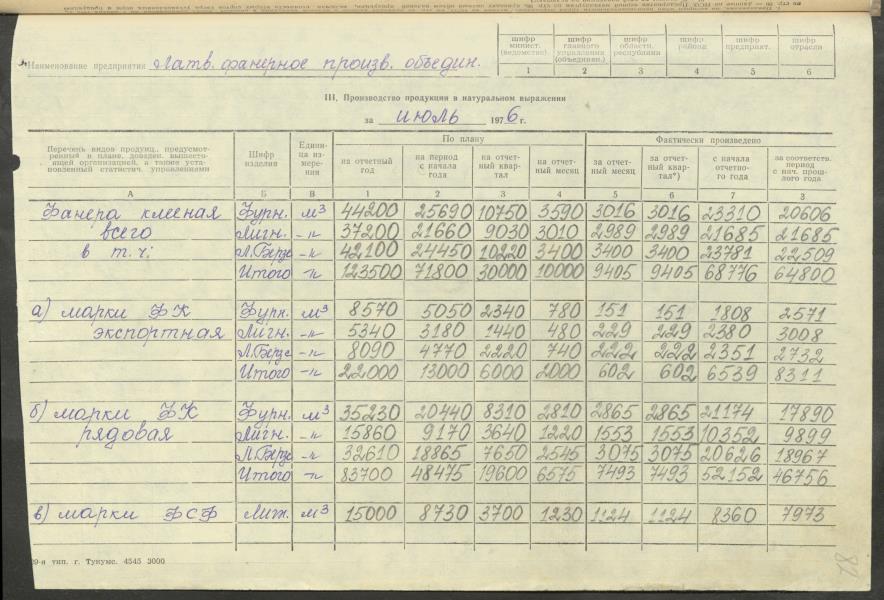 шифр минист. (ведомство) шифр главного управления (объединен.) шифр области, республики шифр района шифр предприят. шифр отрасли
1 2 3 4 5 6
Наименование предприятия Латв. фанерное произв. объедин.
III. Производство продукции в натуральном выражении
за июль 1976 г.
Перечень видов продукц., предусмотренный в плане, доведен. вышестоящей организацией, а также установленный статистич. управлениями Шифр изделия Единица измерения По плану Фактически произведено
на отчетный год на период с начала года на отчетный квартал на отчетный месяц за отчетный месяц за отчетный квартал*) с начала отчетного года за соответств. период с нач. прошлого года
А Б В 1 2 3 4 5 6 7 8
Фанера клееная Фурн. м³ 44200 25690 10750 3590 3016 3016 23310 20606
всего Лигн. -"- 37200 21660 9030 3010 2989 2989 21685 21685
в т.ч: Л.Берзс -"- 42100 24450 10220 3400 3400 3400 23781 22509
Итого -"- 123500 71800 30000 10000 9405 9405 68776 64800
а) марки ФК Фурн. м³ 8570 5050 2340 780 151 151 1808 2571
экспортная Лигн. -"- 5340 3180 1440 480 229 229 2380 3008
Л.Берзс -"- 8090 4770 2220 740 222 222 2351 2732
Итого -"- 22000 13000 6000 2000 602 602 6539 8311
б) марки ФК Фурн. м³ 35230 20440 8310 2810 2865 2865 21174 17890
рядовая Лигн. -"- 15860 9170 3640 1220 1553 1553 10352 9899
Л.Берзс -"- 32610 18865 7650 2545 3075 3075 20626 18967
Итого -"- 83700 48475 19600 6575 7493 7493 52152 46756
в) марки ФСФ Лигн. м³ 15000 8730 3700 1230 1124 1124 8360 7973
9-я тип. г. Тукумс. 4545 3000